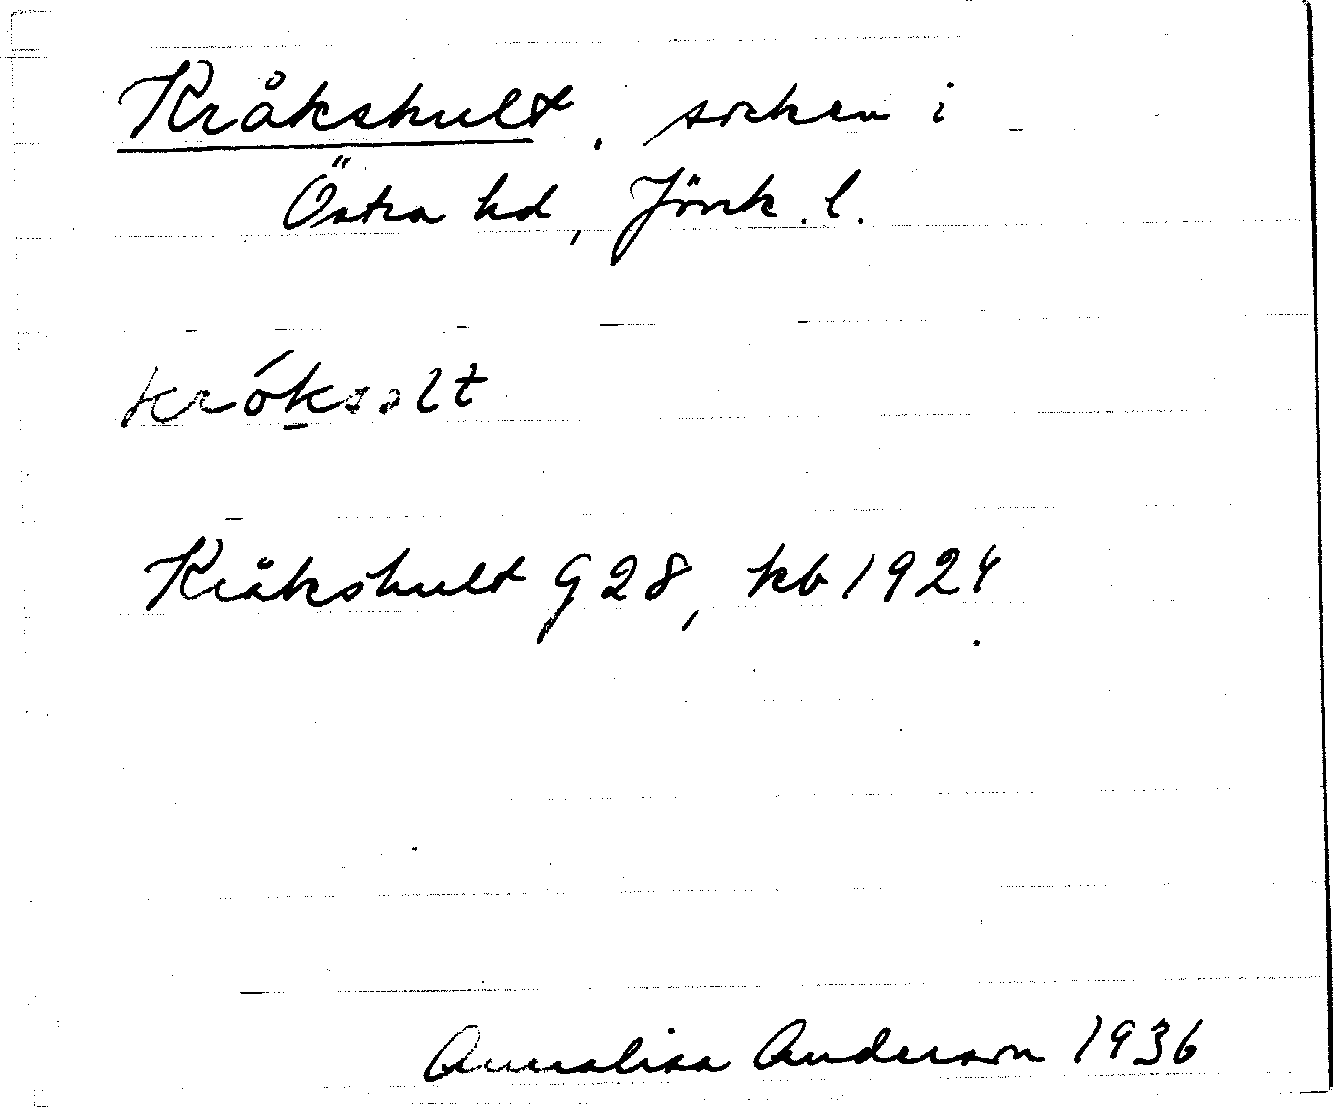 Kråkshult, socken i
Östra hd, Jönk. l.
króksolt
Kråkshult G 28, kb 1924
Annalisa Anderson 1936